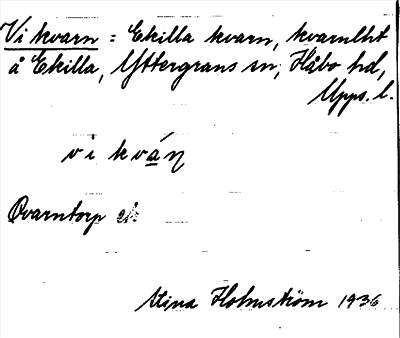 Vi kvarn = Ekilla kvarn, kvarnlht
å Ekilla, Yttergrans sn, Håbo hd,
Upps. l.
vi kván
Qvarntorp ek
Stina Holmström 1936